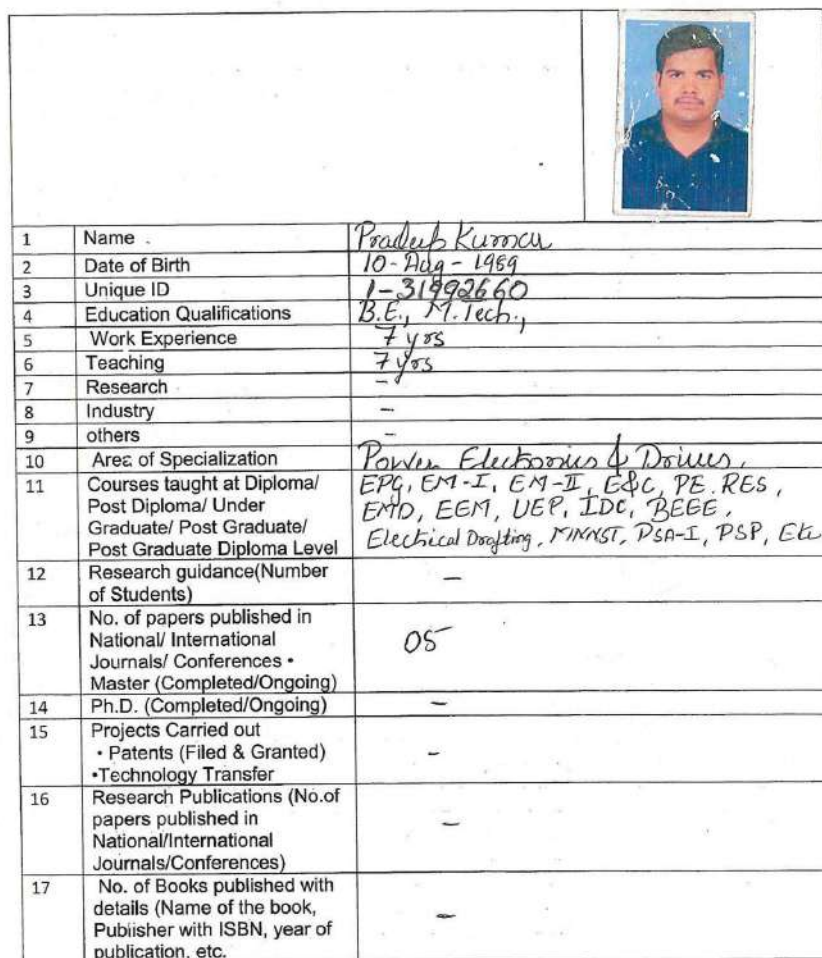 1 Name . Pradeep Kumar
2 Date of Birth 10-Aug-1989
3 Unique ID 1-31992660
4 Education Qualifications B.E., M.Tech.,
5 Work Experience 7 yrs
6 Teaching 7 yrs
7 Research -
8 Industry -
9 others -
10 Area of Specialization Power Electronics & Drives,
11 Courses taught at Diploma/ EPG, EM-I, EM-II, E&C, PE. RES,
Post Diploma/ Under EMD, EEM, UEP, IDC, BEEE,
Graduate/ Post Graduate/
Post Graduate Diploma Level Electrical Drafting, PSA-I, PSP, Etc
12 Research guidance(Number -
of Students)
13 No. of papers published in
National/ International 05
Journals/ Conferences •
Master (Completed/Ongoing)
14 Ph.D. (Completed/Ongoing) -
15 Projects Carried out
• Patents (Filed & Granted) -
•Technology Transfer
16 Research Publications (No.of
papers published in -
National/International
Journals/Conferences)
17 No. of Books published with
details (Name of the book, -
Publisher with ISBN, year of
publication, etc.